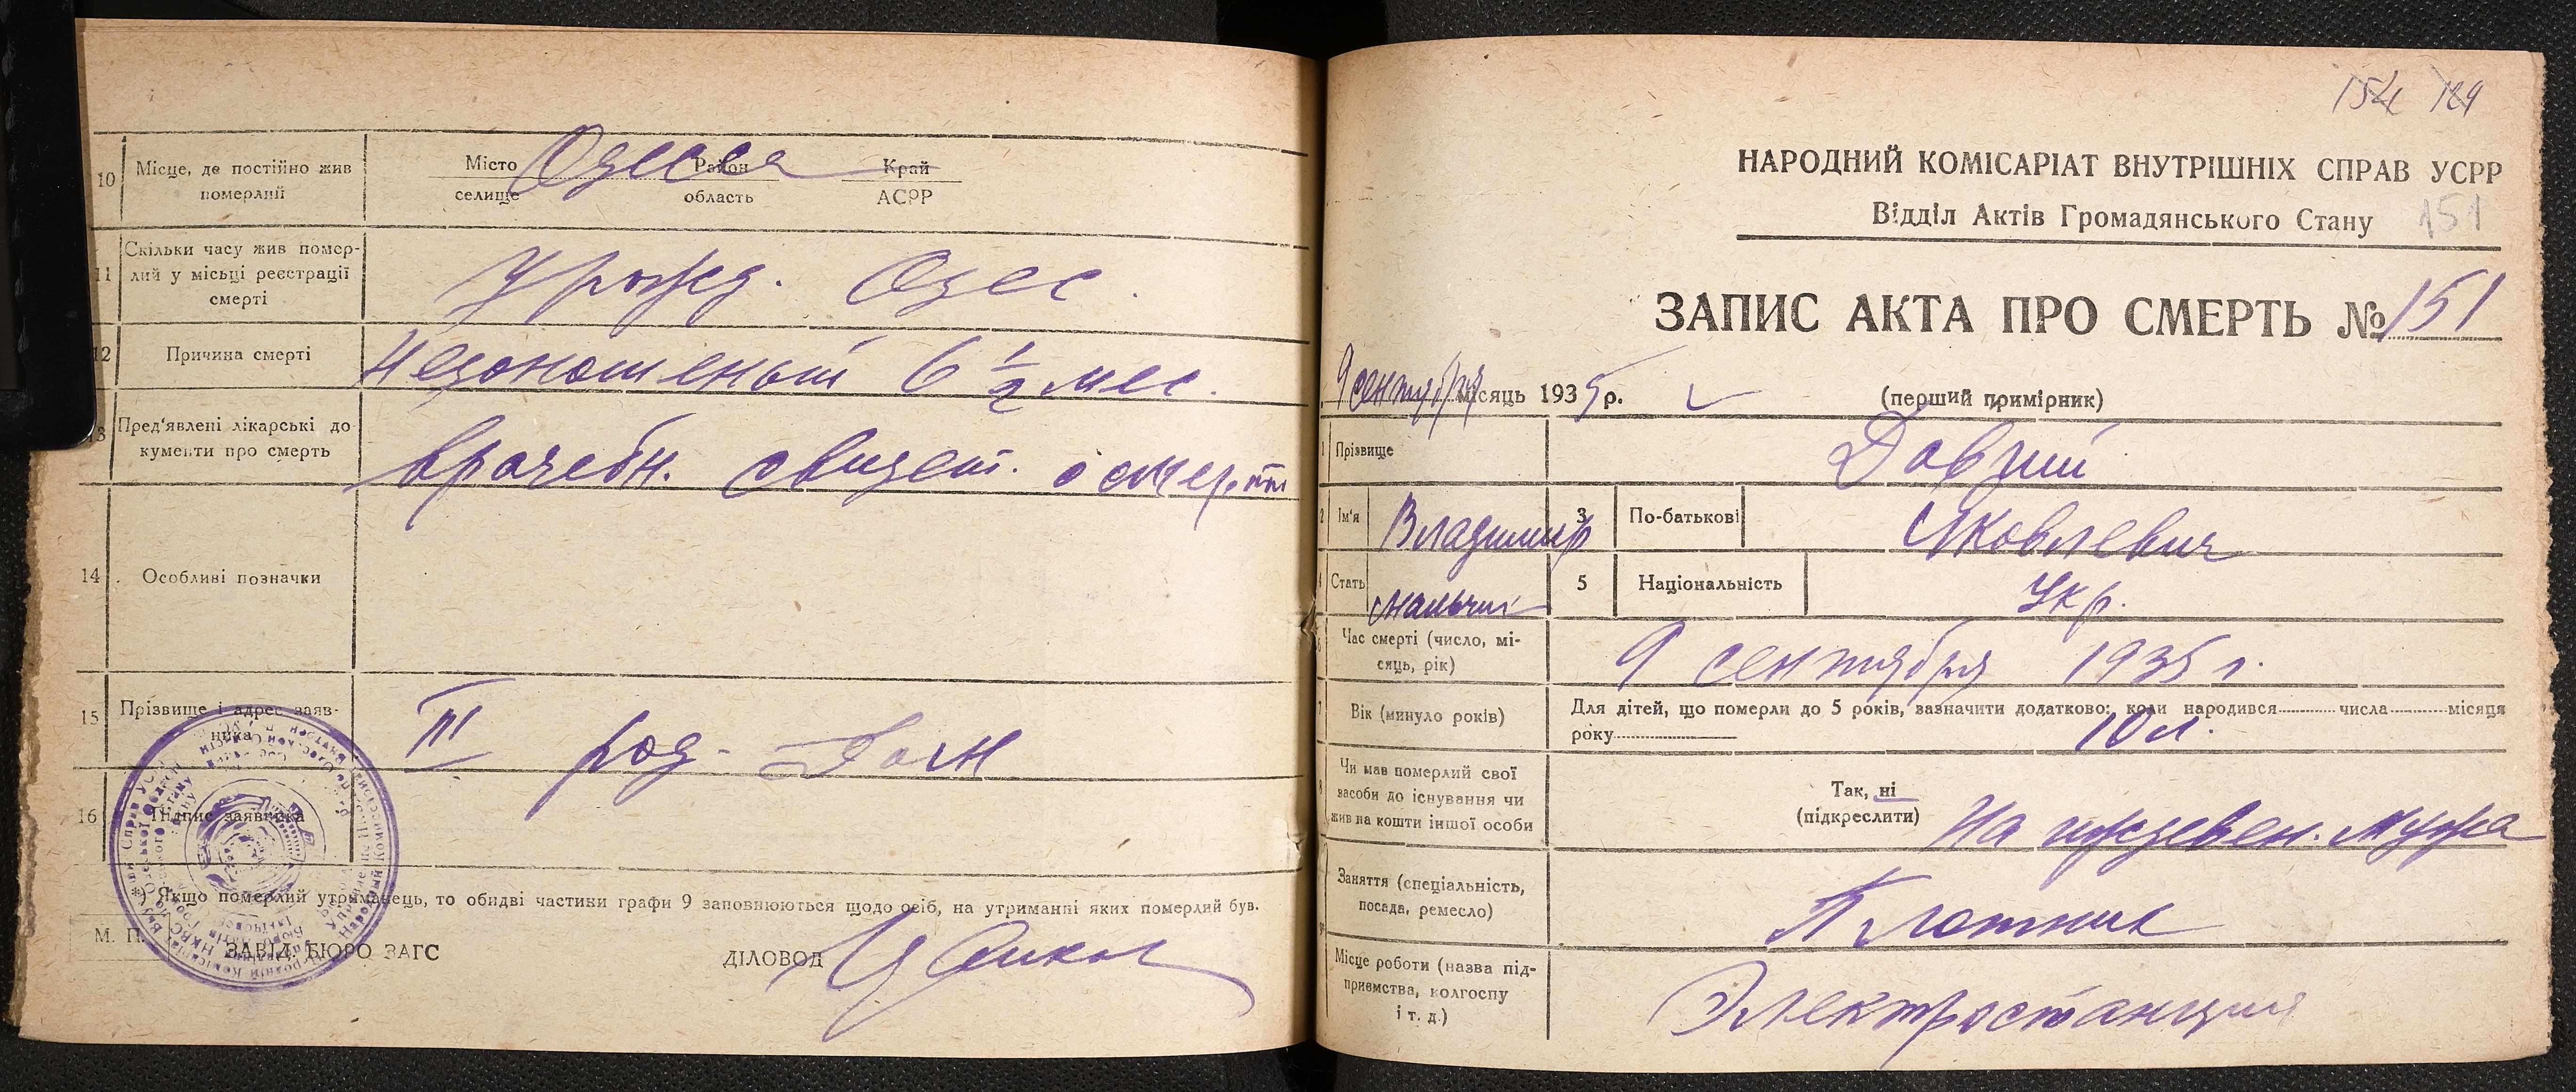 10
Місце, де постійно жив
померлий
Місто Район Край
Одесса
селище область АСРР
11
Скільки часу жив помер-
лий у місьці реєстрації
смерті
Урожд. Одес.
12
Причина смерті
Недоношеный 6 1/2 мес.
13
Пред'явлені лікарські до
кументи про смерть
врачебн. свидет. о смерти
14
Особливі позначки
15
Прізвище і адрес заяв-
ника
III род. Дом
16
Підпис заявника
*) Якщо померлий утриманець, то обидві частини графи 9 заповнюються щодо осіб, на утриманні яких померлий був.
М. П.
ЗАВІД. БЮРО ЗАГС
ДІЛОВОД
НАРОДНИЙ КОМІСАРІАТ ВНУТРІШНІХ СПРАВ УСРР
Відділ Актів Громадянського Стану
151
ЗАПИС АКТА ПРО СМЕРТЬ № 151
9 сентября місяць 1935 р.
(перший примірник)
1
Прізвище
2
Ім'я
Владимир
3
По-батькові
Яковлевич
4
Стать
мальчик
5
Національність
Укр.
6
Час смерті (число, мі-
сяць, рік)
9 сентября 1935 г.
7
Вік (минуло років)
Для дітей, що померли до 5 років, зазначити додатково: коли народився числа місяця
року
8
Чи мав померлий свої
засоби до існування чи
жив на кошти іншої особи
Так, ні
(підкреслити)
На иждевен. мужа
9*
Заняття (спеціальність,
посада, ремесло)
Плотник
Місце роботи (назва під-
приємства, колгоспу
і т. д.)
Электростанция